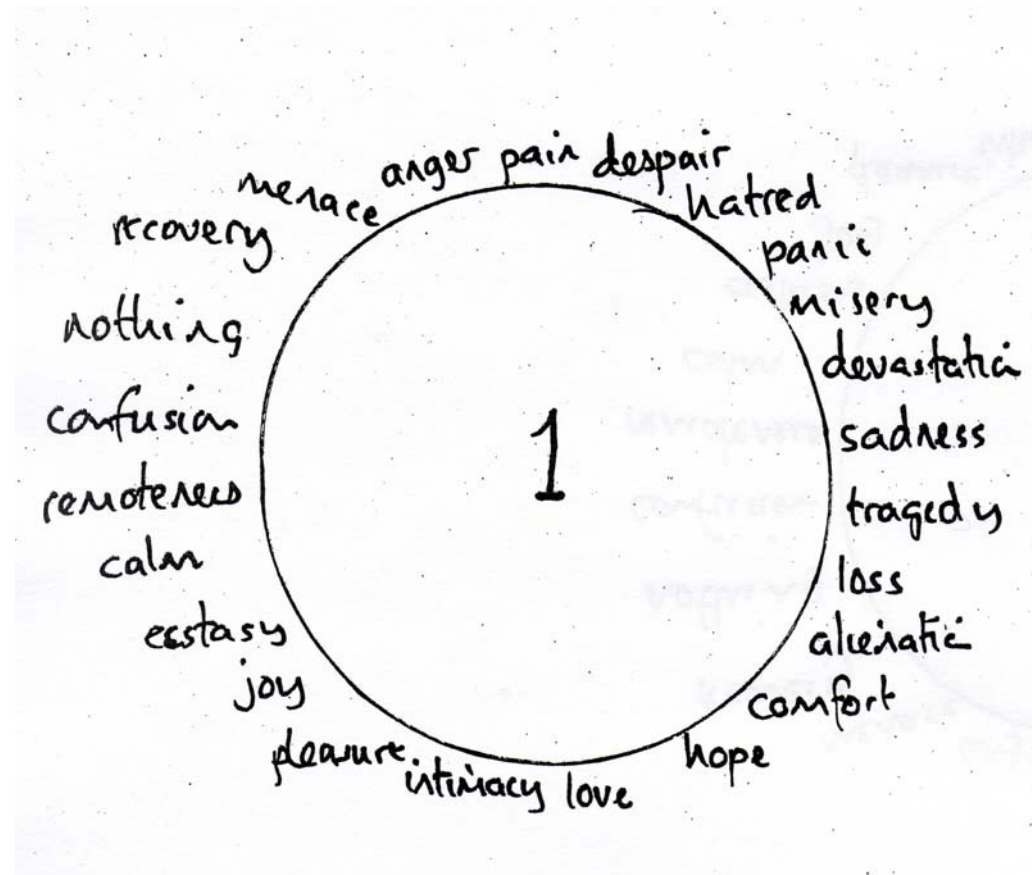 anger pain despair
hatred
panic
misery
devastatin
sadness
tragedy
loss
alienatin
comfort
hope
love
intimacy
pleasure
joy
esstasy
calm
remoteness
confusion
nothing
recovery
menace
1